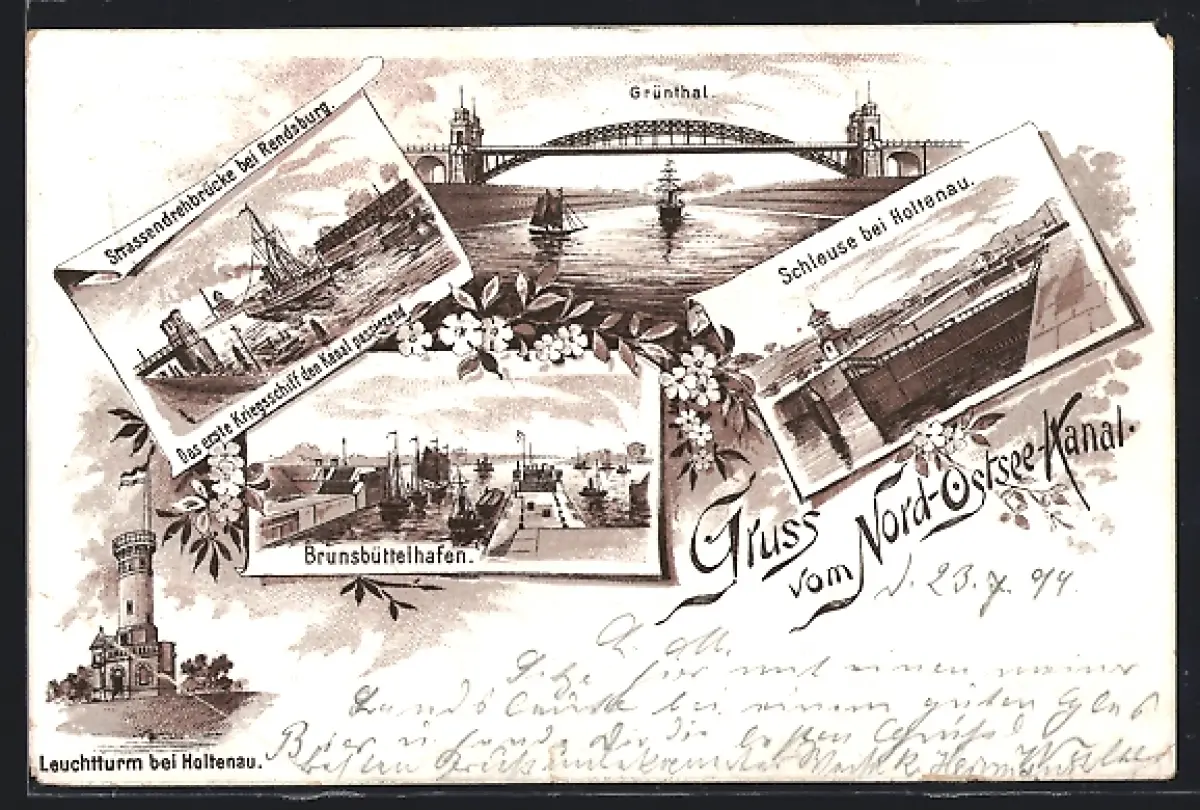 Grünthal.
Strassendrehbrücke bei Rendsburg.
Das erste Kriegsschiff den Kanal passierend
Schleuse bei Holtenau.
Brunsbüttelhafen.
Gruss
vom Nord-Ostsee-Kanal.
Leuchtturm bei Holtenau.
d. 23. 7. 94.
Sitze hier mit einem meiner
bei einem guten Glas
Bier u. sende Dir die besten